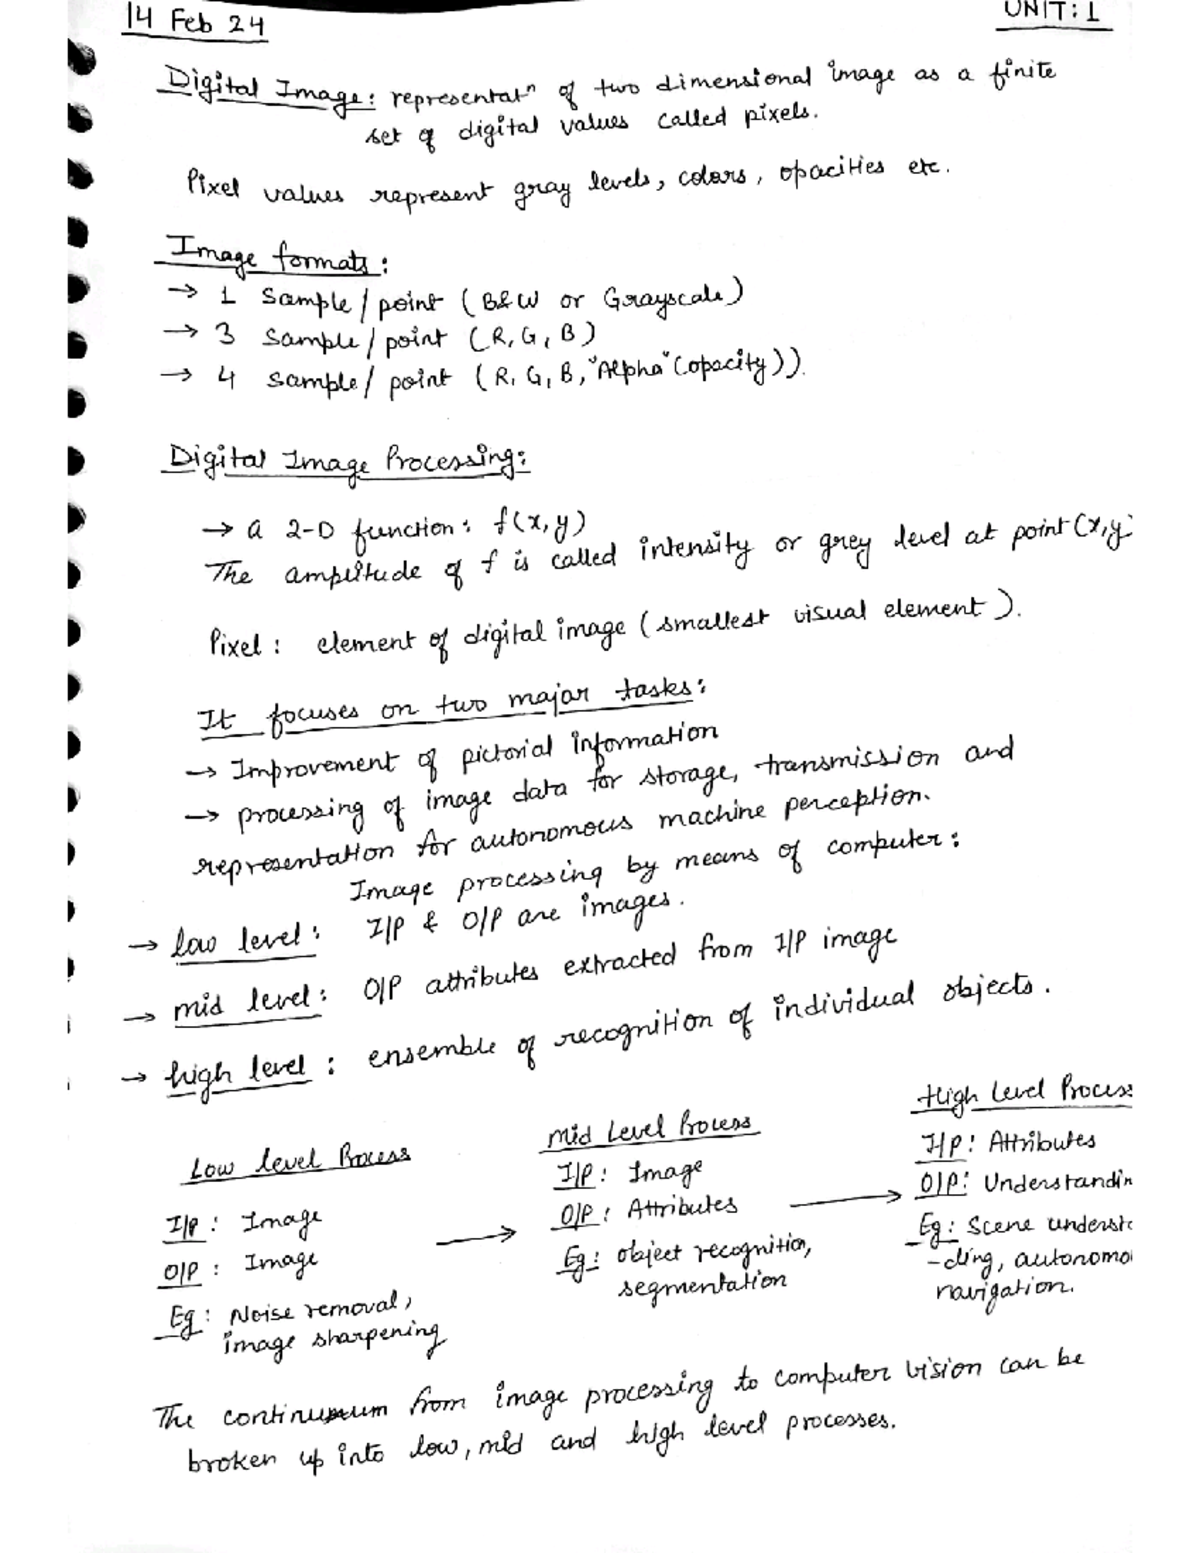 14 Feb 24
UNIT: 1
Digital Image: representatⁿ of two dimensional image as a finite
set of digital values called pixels.
Pixel values represent gray levels, colors, opacities etc.
Image formats:
→ 1 Sample/point (B&W or Grayscale)
→ 3 Sample/point (R, G, B)
→ 4 Sample/point (R, G, B, "Alpha" (opacity)).
Digital Image Processing:
→ a 2-D function: f(x, y)
The amplitude of f is called intensity or grey level at point (x, y)
Pixel: element of digital image (smallest visual element).
It focuses on two major tasks:
→ Improvement of pictorial information
→ processing of image data for storage, transmission and
representation for autonomous machine perception.
Image processing by means of computer:
→ low level: I/P & O/P are images.
→ mid level: O/P attributes extracted from I/P image
→ high level: ensemble of recognition of individual objects.
Low level Process
I/P: Image
O/P: Image
Eg: Noise removal,
image sharpening
Mid Level Process
I/P: Image
O/P: Attributes
Eg: object recognition,
segmentation
High Level Process
I/P: Attributes
O/P: Understandin
Eg: Scene underst
-ding, autonomo
navigation.
The continuum from image processing to computer vision can be
broken up into low, mid and high level processes.